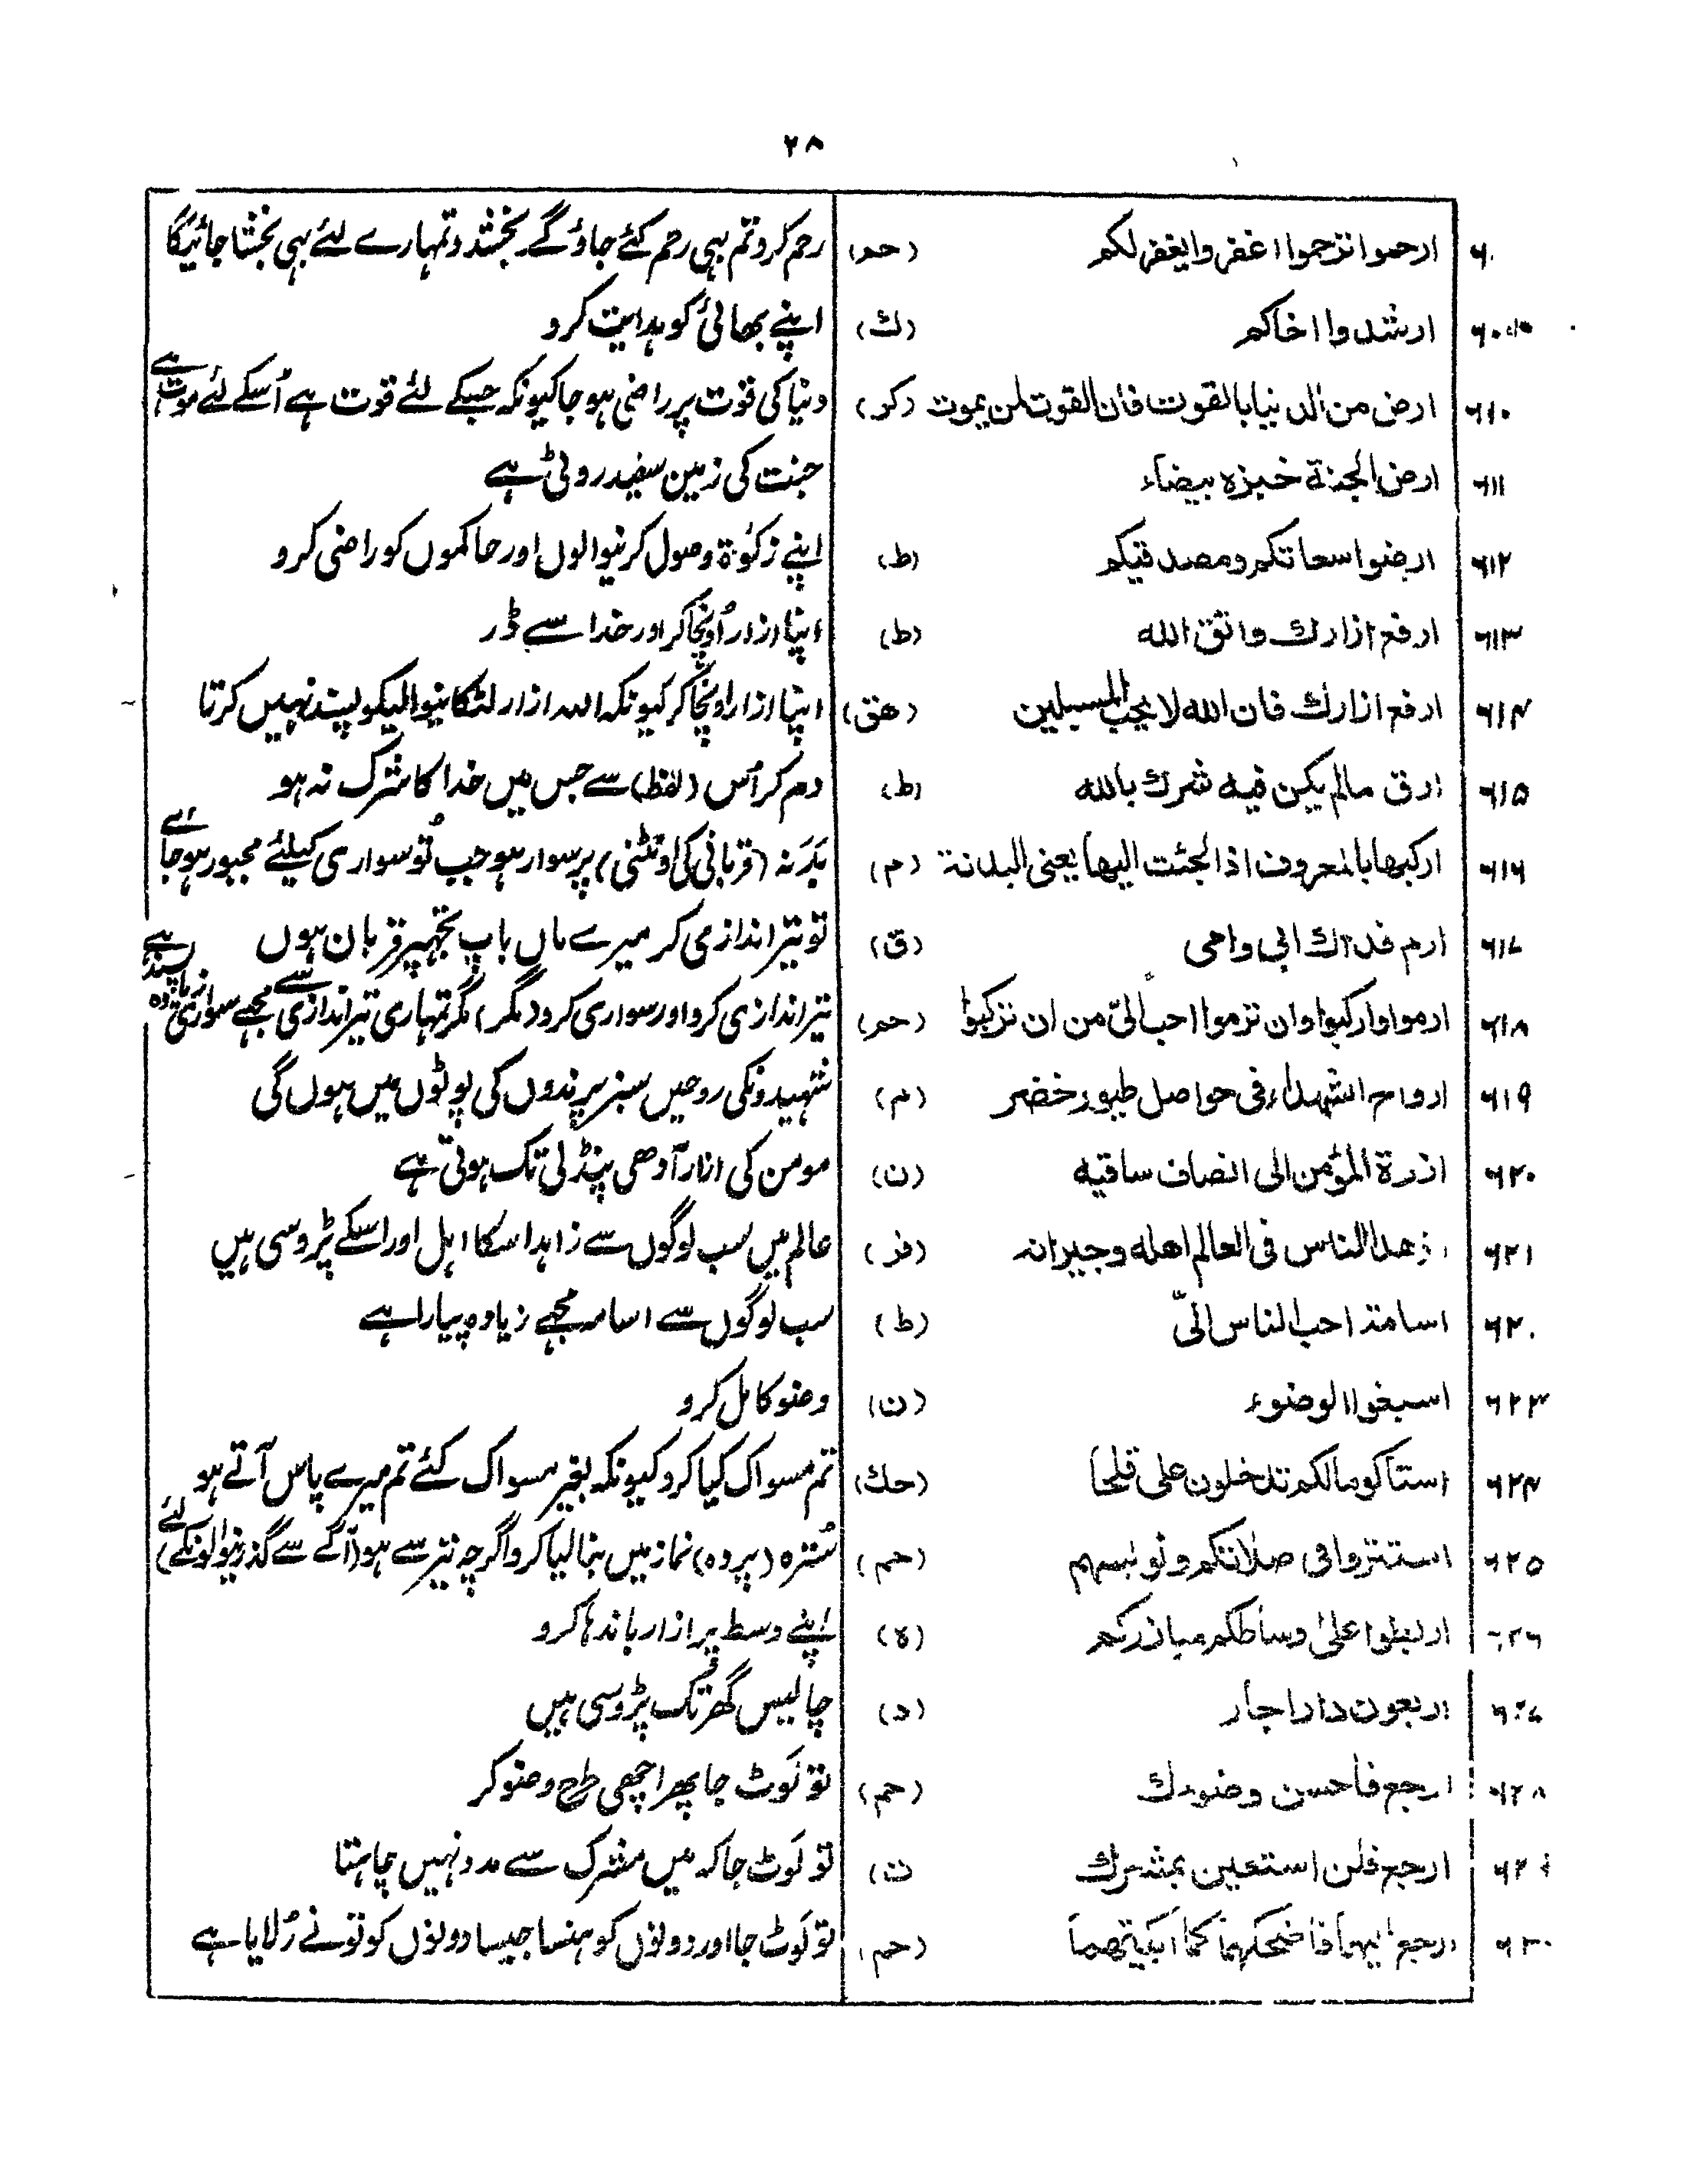 ۲۸
ارحموا ترحموا اغفروا یغفر لکم (حم) رحم کرو تم بہی رحم کئے جاؤ گے بخشدو تمہارے لئے بہی بخشا جائیگا
ارشدوا اخاکم (ك) اپنے بھائی کو ہدایت کرو
۶۱۰ ارض من الدنیا بالقوت فان القوت لمن یموت (کر) دنیا کی قوت پر راضی ہو جا کیونکہ جسکے لئے قوت ہے اُسکے لئے موت ہے
۶۱۱ ارض الجنة خبزه بیضاء جنت کی زمین سفید روٹی ہے
۶۱۲ ارضوا سعاتکم ومصدقیکم (ط) اپنے زکوٰۃ وصول کرنیوالوں اور حاکموں کو راضی کرو
۶۱۳ ارفع ازارك واتق الله (ط) اپنا ازار اُونچا کر اور خدا سے ڈر
۶۱۴ ارفع ازارك فان الله لا یحب المسبلین (هق) اپنا ازار اونچا کر کیونکہ اللہ ازار لٹکانیوالیکو پسند نہیں کرتا
۶۱۵ ارق مالم یکن فیه شرك بالله (ط) دم کر اُس (لفظ) سے جس میں خدا کا شرک نہ ہو
۶۱۶ ارکبها بالمعروف اذا لجئت الیها یعنی البدنة (م) بَدَنہ (قربانی کی اونٹنی) پر سوار ہو جب تُو سواری کیلئے مجبور ہو جائے
۶۱۷ ارم فداك ابی وامی (ق) تو تیر اندازی کر میرے ماں باپ تجہپر قربان ہوں
۶۱۸ ارموا وارکبوا وان ترموا احب الیّ من ان ترکبوا (حم) تیر اندازی کرو اور سواری کرو (مگر) مگر تمہاری تیر اندازی مجھے سواری سے زیادہ پسند ہے
۶۱۹ ارواح الشهداء فی حواصل طیور خضر (م) شہیدونکی روحیں سبز پرندوں کی پوٹوں میں ہوں گی
۶۲۰ ازرة المؤمن الی انصاف ساقیه (ن) مومن کی ازار آدھی پنڈلی تک ہوتی ہے
۶۲۱ زهد الناس فی العالم اهله وجیرانه (فر) عالم میں سب لوگوں سے زاہد اسکا اہل اور اسکے پڑوسی ہیں
اسامة احب الناس الیّ (ط) سب لوگوں سے اسامہ مجھے زیادہ پیارا ہے
۶۲۳ اسبغوا الوضوء (ن) وضو کامل کرو
۶۲۴ استاکو مالکم تدخلون علی قلحا (حك) تم مسواک کیا کرو کیونکہ بغیر مسواک کئے تم میرے پاس آتے ہو
۶۲۵ استتروا فی صلاتکم ولو بسهم (حم) سُترہ (پردہ) نماز میں بنا لیا کرو اگرچہ تیر سے ہو (آگے سے گذرنیوالونکے لئے)
۶۲۶ اربطوا علی وساطکم میازرکم (ه) اپنے وسط پر ازار باندہا کرو
۶۲۷ اربعون دارا جار (د) چالیس گھر تک پڑوسی ہیں
۶۲۸ ارجع فاحسن وضوءك (حم) تو لَوٹ جا پھر اچھی طرح وضو کر
ارجع فلن استعین بمشرك (ت) تو لَوٹ جا کہ میں مشرک سے مدد نہیں چاہتا
ارجع الیهما فاضحکهما کما ابکیتهما (حم) تو لَوٹ جا اور دونوں کو ہنسا جیسا دونوں کو تونے رُلایا ہے